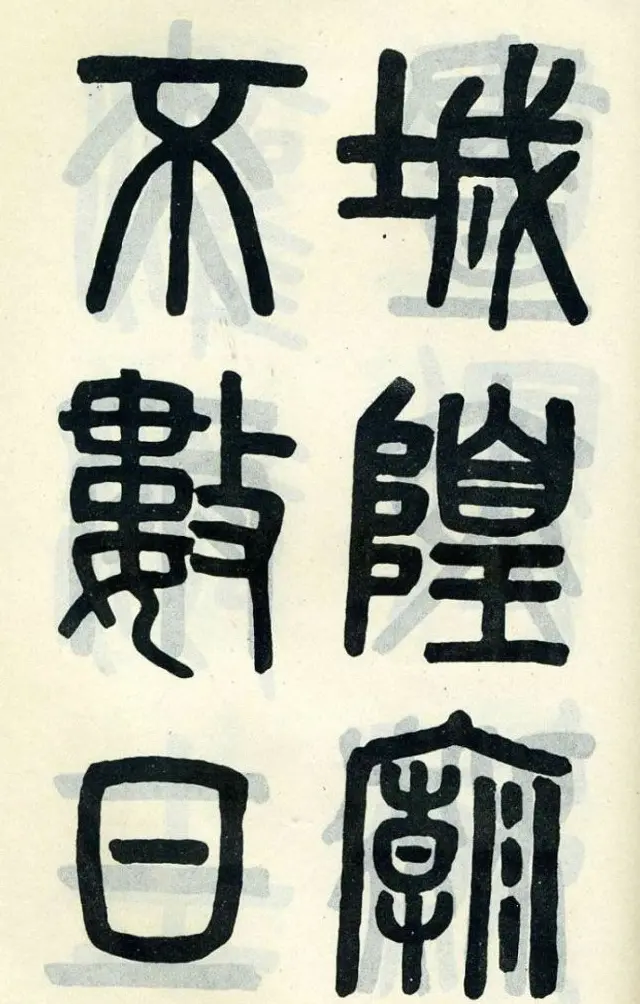 城隍廟
不數日